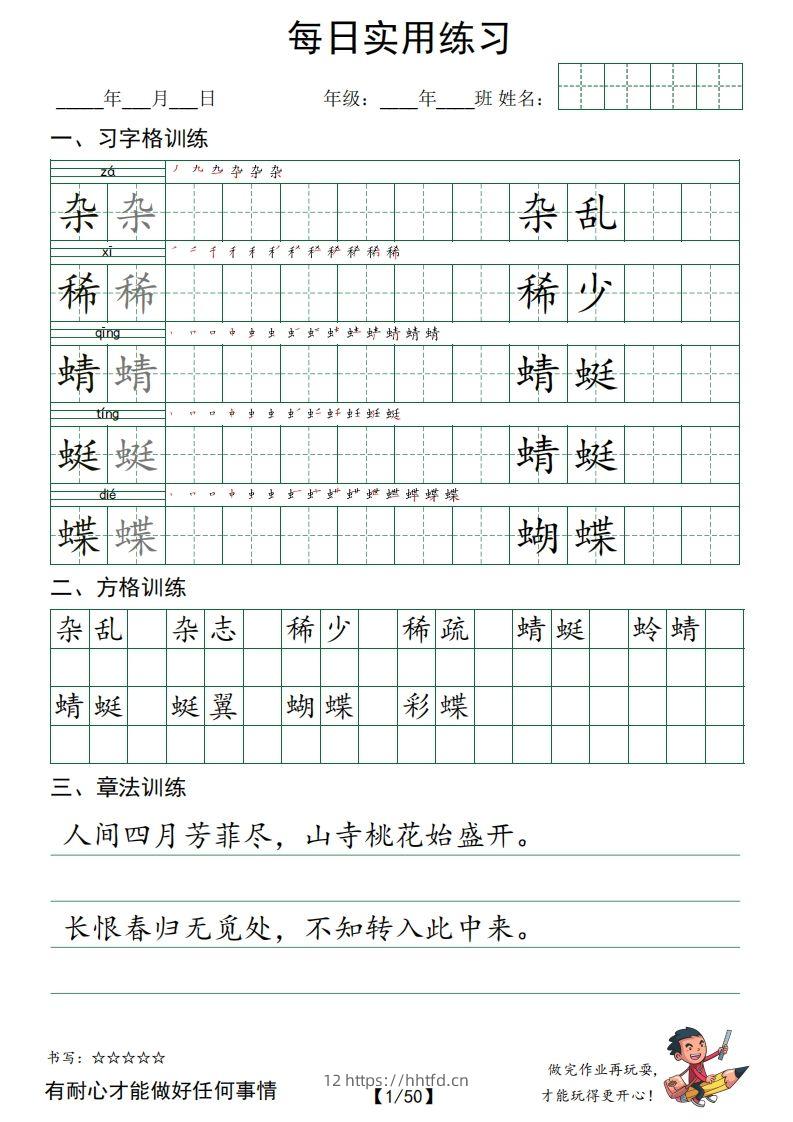 每日实用练习
_____年___月___日 年级：____年____班 姓名：
一、习字格训练
zá
杂 杂 杂 乱
xī
稀 稀 稀 少
qīng
蜻 蜻 蜻 蜓
tíng
蜓 蜓 蜻 蜓
dié
蝶 蝶 蝴 蝶
二、方格训练
杂乱 杂志 稀少 稀疏 蜻蜓 蛉蜻
蜻蜓 蜓翼 蝴蝶 彩蝶
三、章法训练
人间四月芳菲尽，山寺桃花始盛开。
长恨春归无觅处，不知转入此中来。
书写：☆☆☆☆☆
有耐心才能做好任何事情
12 https://hhtfd.cn
【1/50】
做完作业再玩耍，
才能玩得更开心！